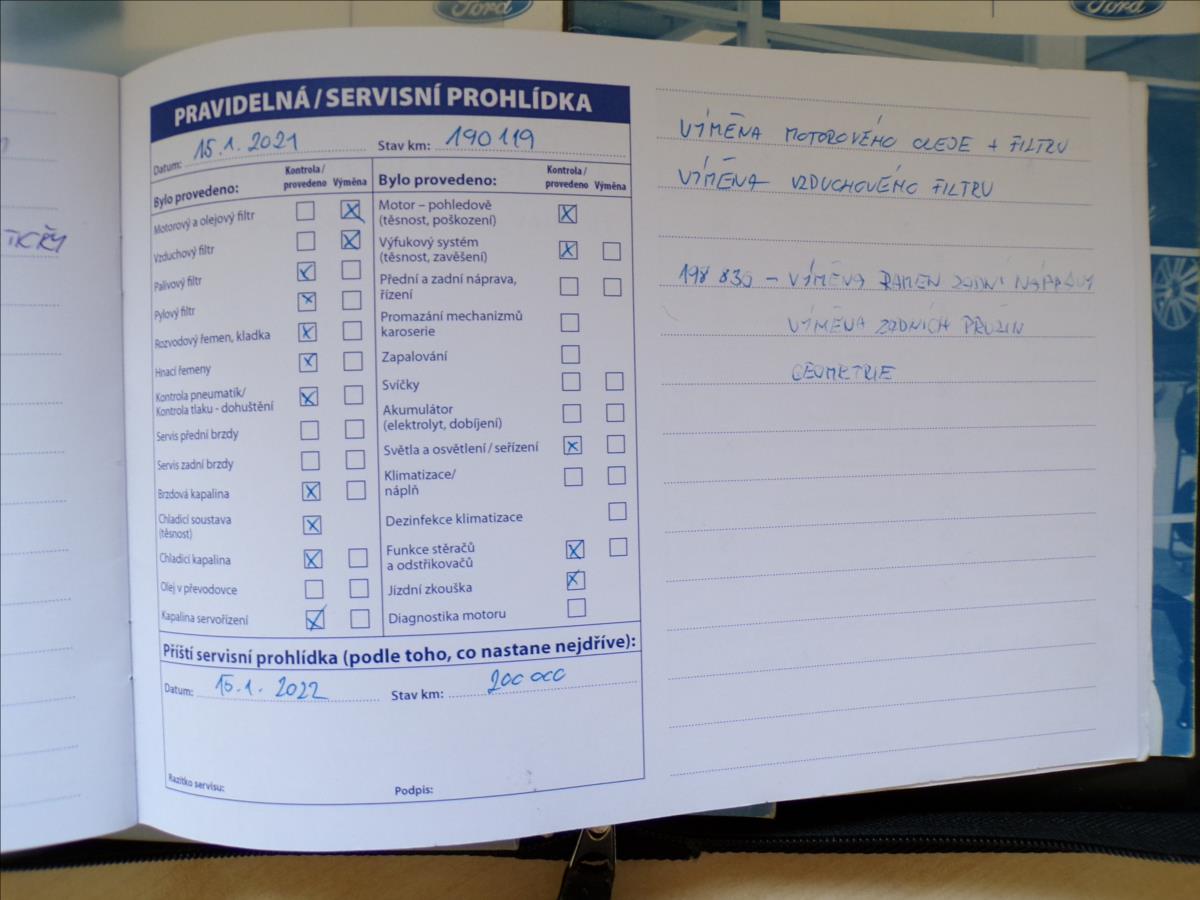 Ford
Ford
TKŘY
PRAVIDELNÁ / SERVISNÍ PROHLÍDKA
Datum: 15.1.2021
Stav km: 190119
Bylo provedeno:
Kontrola / provedeno
Výměna
Motorový a olejový filtr
Vzduchový filtr
Palivový filtr
Pylový filtr
Rozvodový řemen, kladka
Hnací řemeny
Kontrola pneumatik/
Kontrola tlaku - dohuštění
Servis přední brzdy
Servis zadní brzdy
Brzdová kapalina
Chladicí soustava
(těsnost)
Chladicí kapalina
Olej v převodovce
Kapalina servořízení
Bylo provedeno:
Kontrola / provedeno
Výměna
Motor – pohledově
(těsnost, poškození)
Výfukový systém
(těsnost, zavěšení)
Přední a zadní náprava,
řízení
Promazání mechanizmů
karoserie
Zapalování
Svíčky
Akumulátor
(elektrolyt, dobíjení)
Světla a osvětlení / seřízení
Klimatizace/
náplň
Dezinfekce klimatizace
Funkce stěračů
a odstřikovačů
Jízdní zkouška
Diagnostika motoru
Příští servisní prohlídka (podle toho, co nastane nejdříve):
Datum: 15.1. 2022
Stav km: 200 000
Razítko servisu:
Podpis:
VÝMĚNA MOTOROVÉHO OLEJE + FILTRU
VÝMĚNA VZDUCHOVÉHO FILTRU
198 830 – VÝMĚNA RAMEN ZADNÍ NÁPRAVY
VÝMĚNA ZADNÍCH PRUŽIN
GEOMETRIE